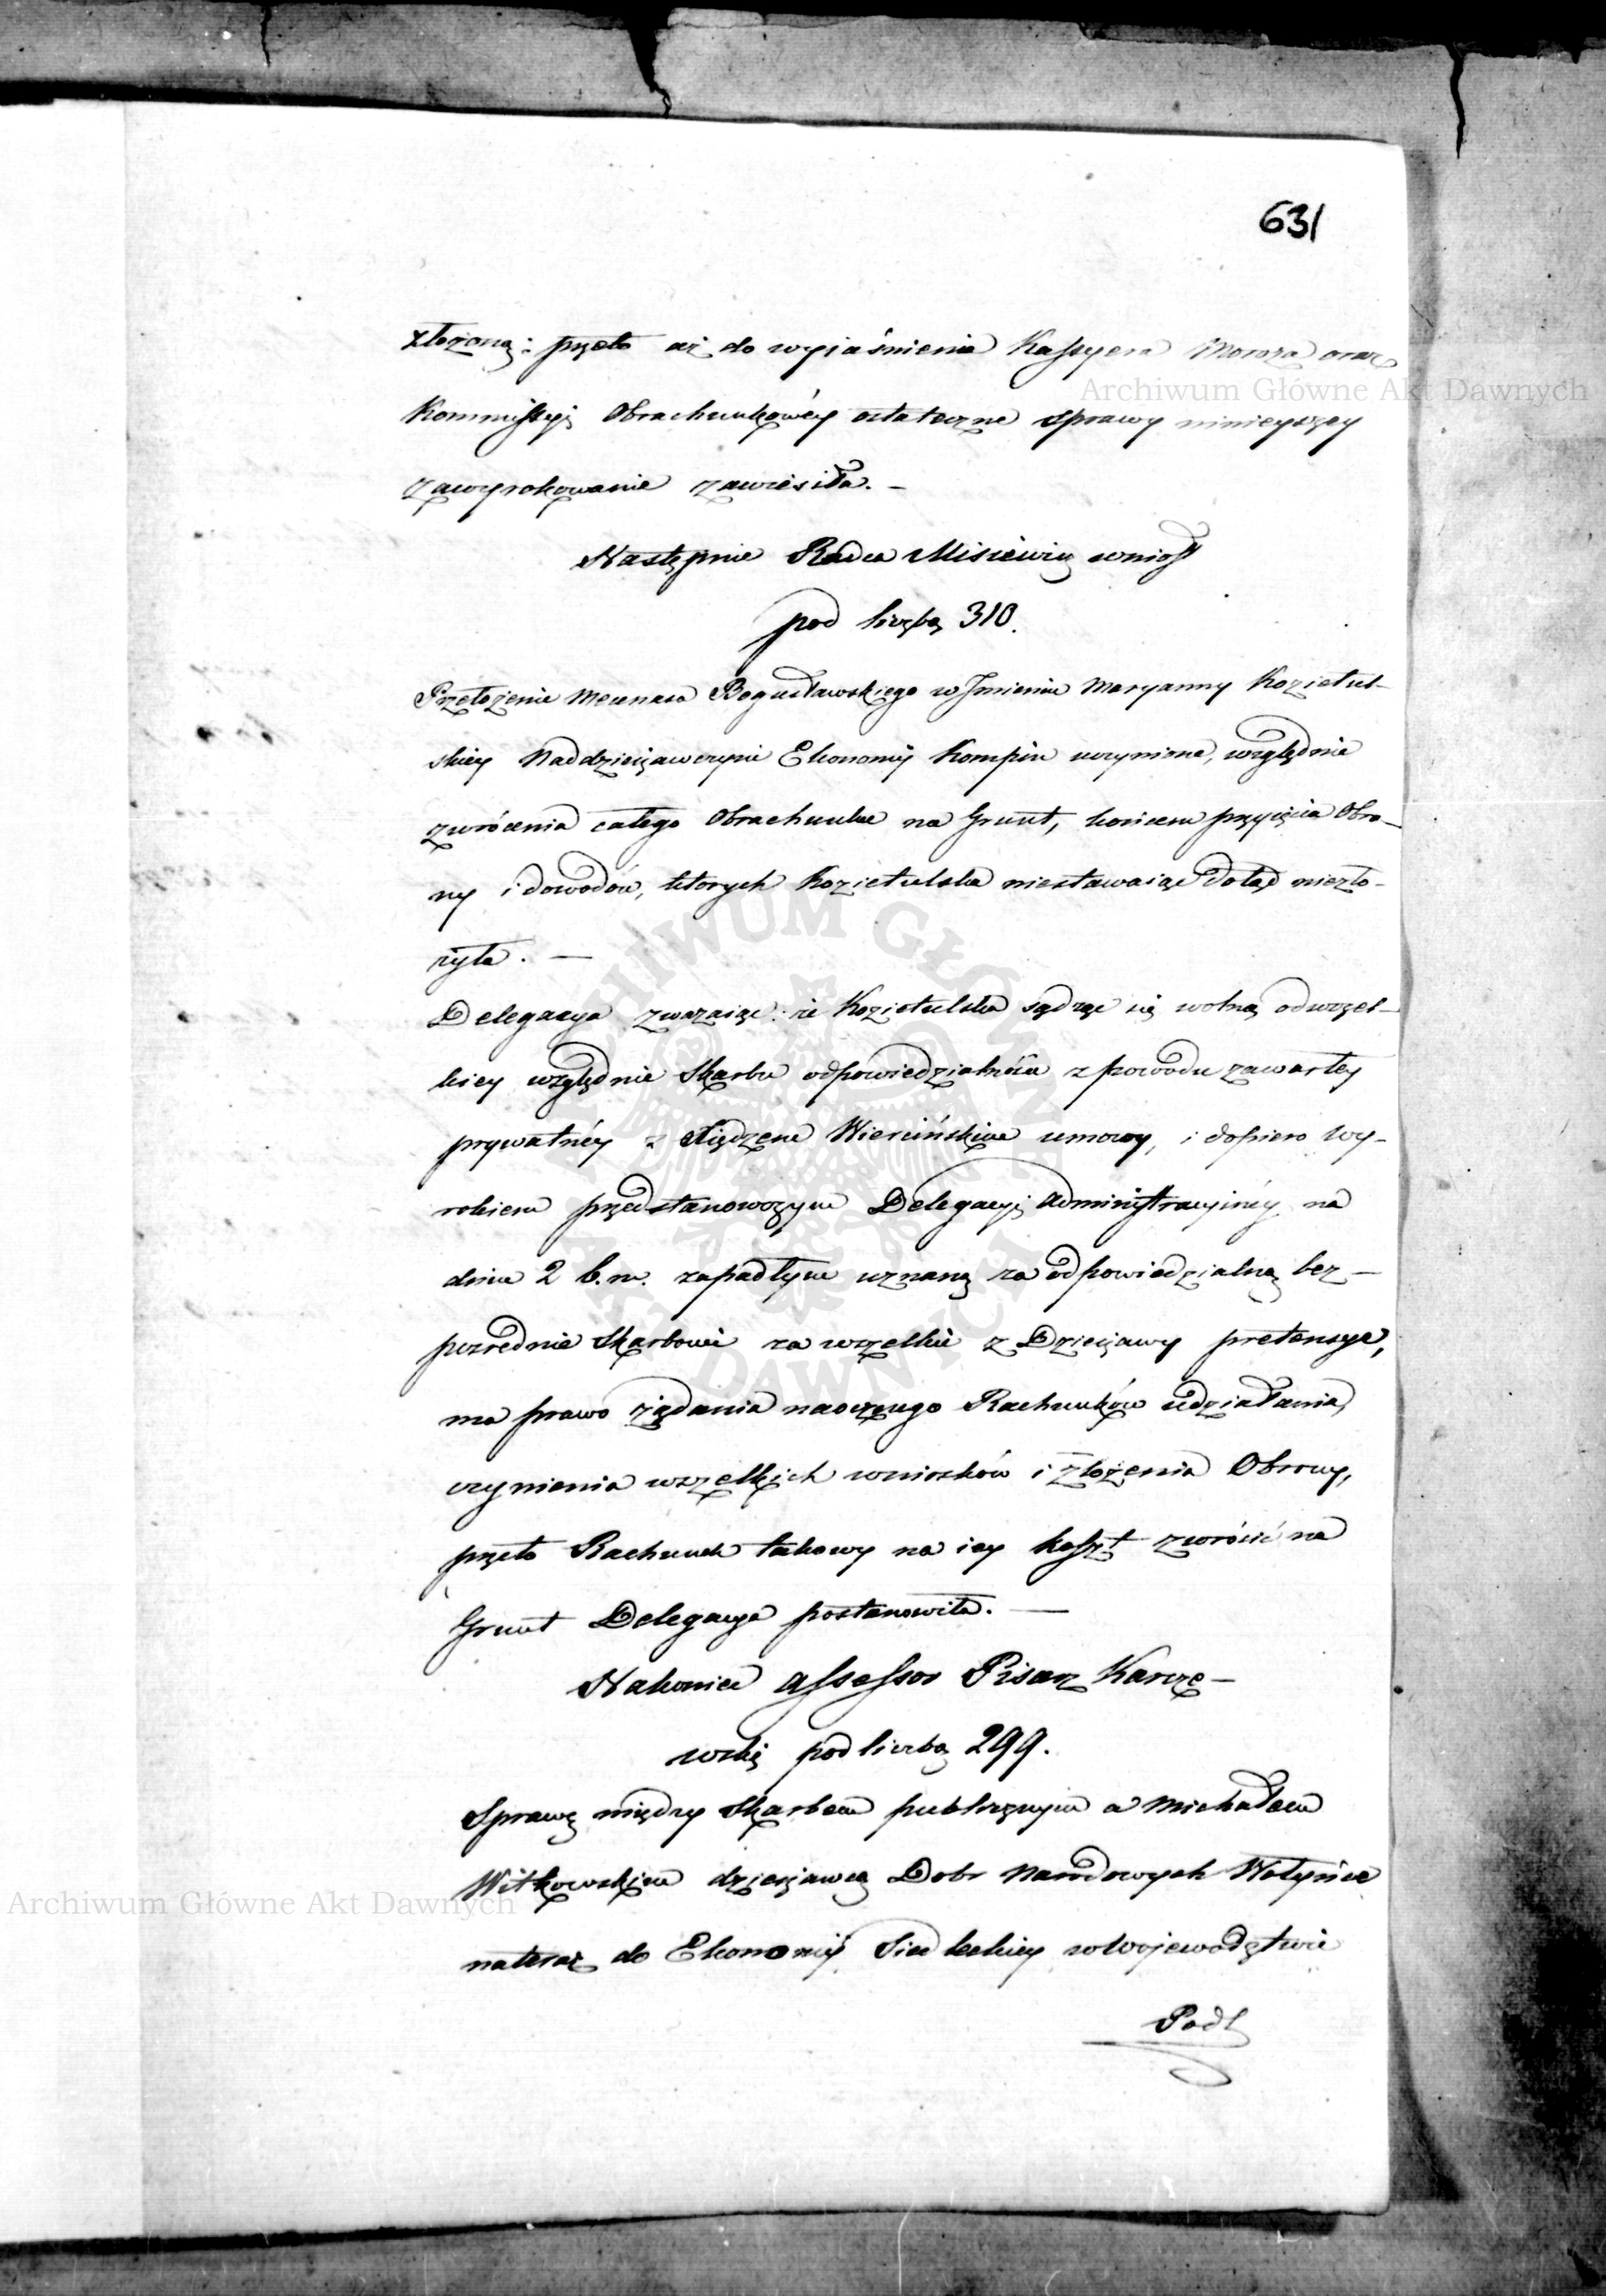 631
złożoną; przeto aż do wyjaśnienia Kassyera Moroza oraz
Kommissyi Obrachunkowéy ostateczne sprawy ninieyszey
zawyrokowanie zawiesiła. –
Następnie Radca Misiewicz wniosł
pod liczbą 310.
Przełożenie Mecenasa Bogusławskiego w Jmieniu Maryanny Kozietul-
skiey Naddzierżawczyni Ekonomij Kompin uczynione, względnie
zwrócenia całego Obrachunku na Grunt, końcem przyięcia Obro-
ny i dowodów, ktorych Kozietulska niestawaiąc dotąd niezło-
żyła. —
Delegacya zważaiąc: że Kozietulska sądząc się wolną od wszel-
kiey względnie Skarbu odpowiedzialności z powodu zawartey
prywatnéy z Xiędzem Wiercińskim umowy, i dopiero Wy-
rokiem przedstanowczym Delegacyi Administracyinéy na
dniu 2 b. m. zapadłym uznaną za odpowiedzialną bez-
pozrednie Skarbowi za wszelkie z Dzierżawy pretensye,
ma prawo żądania naocznego Rachunków udziałania,
czynienia wszelkich wniosków i złożenia Obrony,
przeto Rachunek takowy na iey koszt zwrócić na
Grunt Delegacya postanowiła. —
Nakoniec Assessor Pisarz Karcze-
wski pod liczbą 299.
Sprawę między Skarbem publicznym a Michałem
Witkowskim dzierżawcą Dobr Narodowych Wołyńce
nateraz do Ekonomij Siedleckiey w Wojewodztwie
Podl
Archiwum Główne Akt Dawnych
ARCHIWUM GŁÓWNE AKT DAWNYCH
Archiwum Główne Akt Dawnych